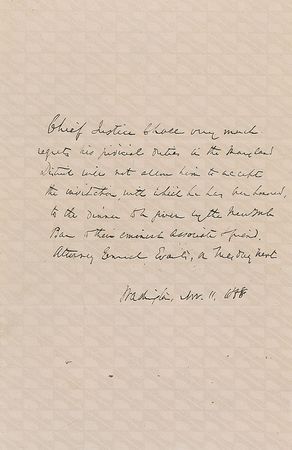 Chief Justice Chase very much
regrets his judicial duties in the Maryland
District will not allow him to accept
the invitation, with which he has been honored,
to the Dinner to be given by the New York
Bar to their eminent associate & friend,
Attorney General Evarts, on Tuesday next
Washington, Nov. 11, 1868